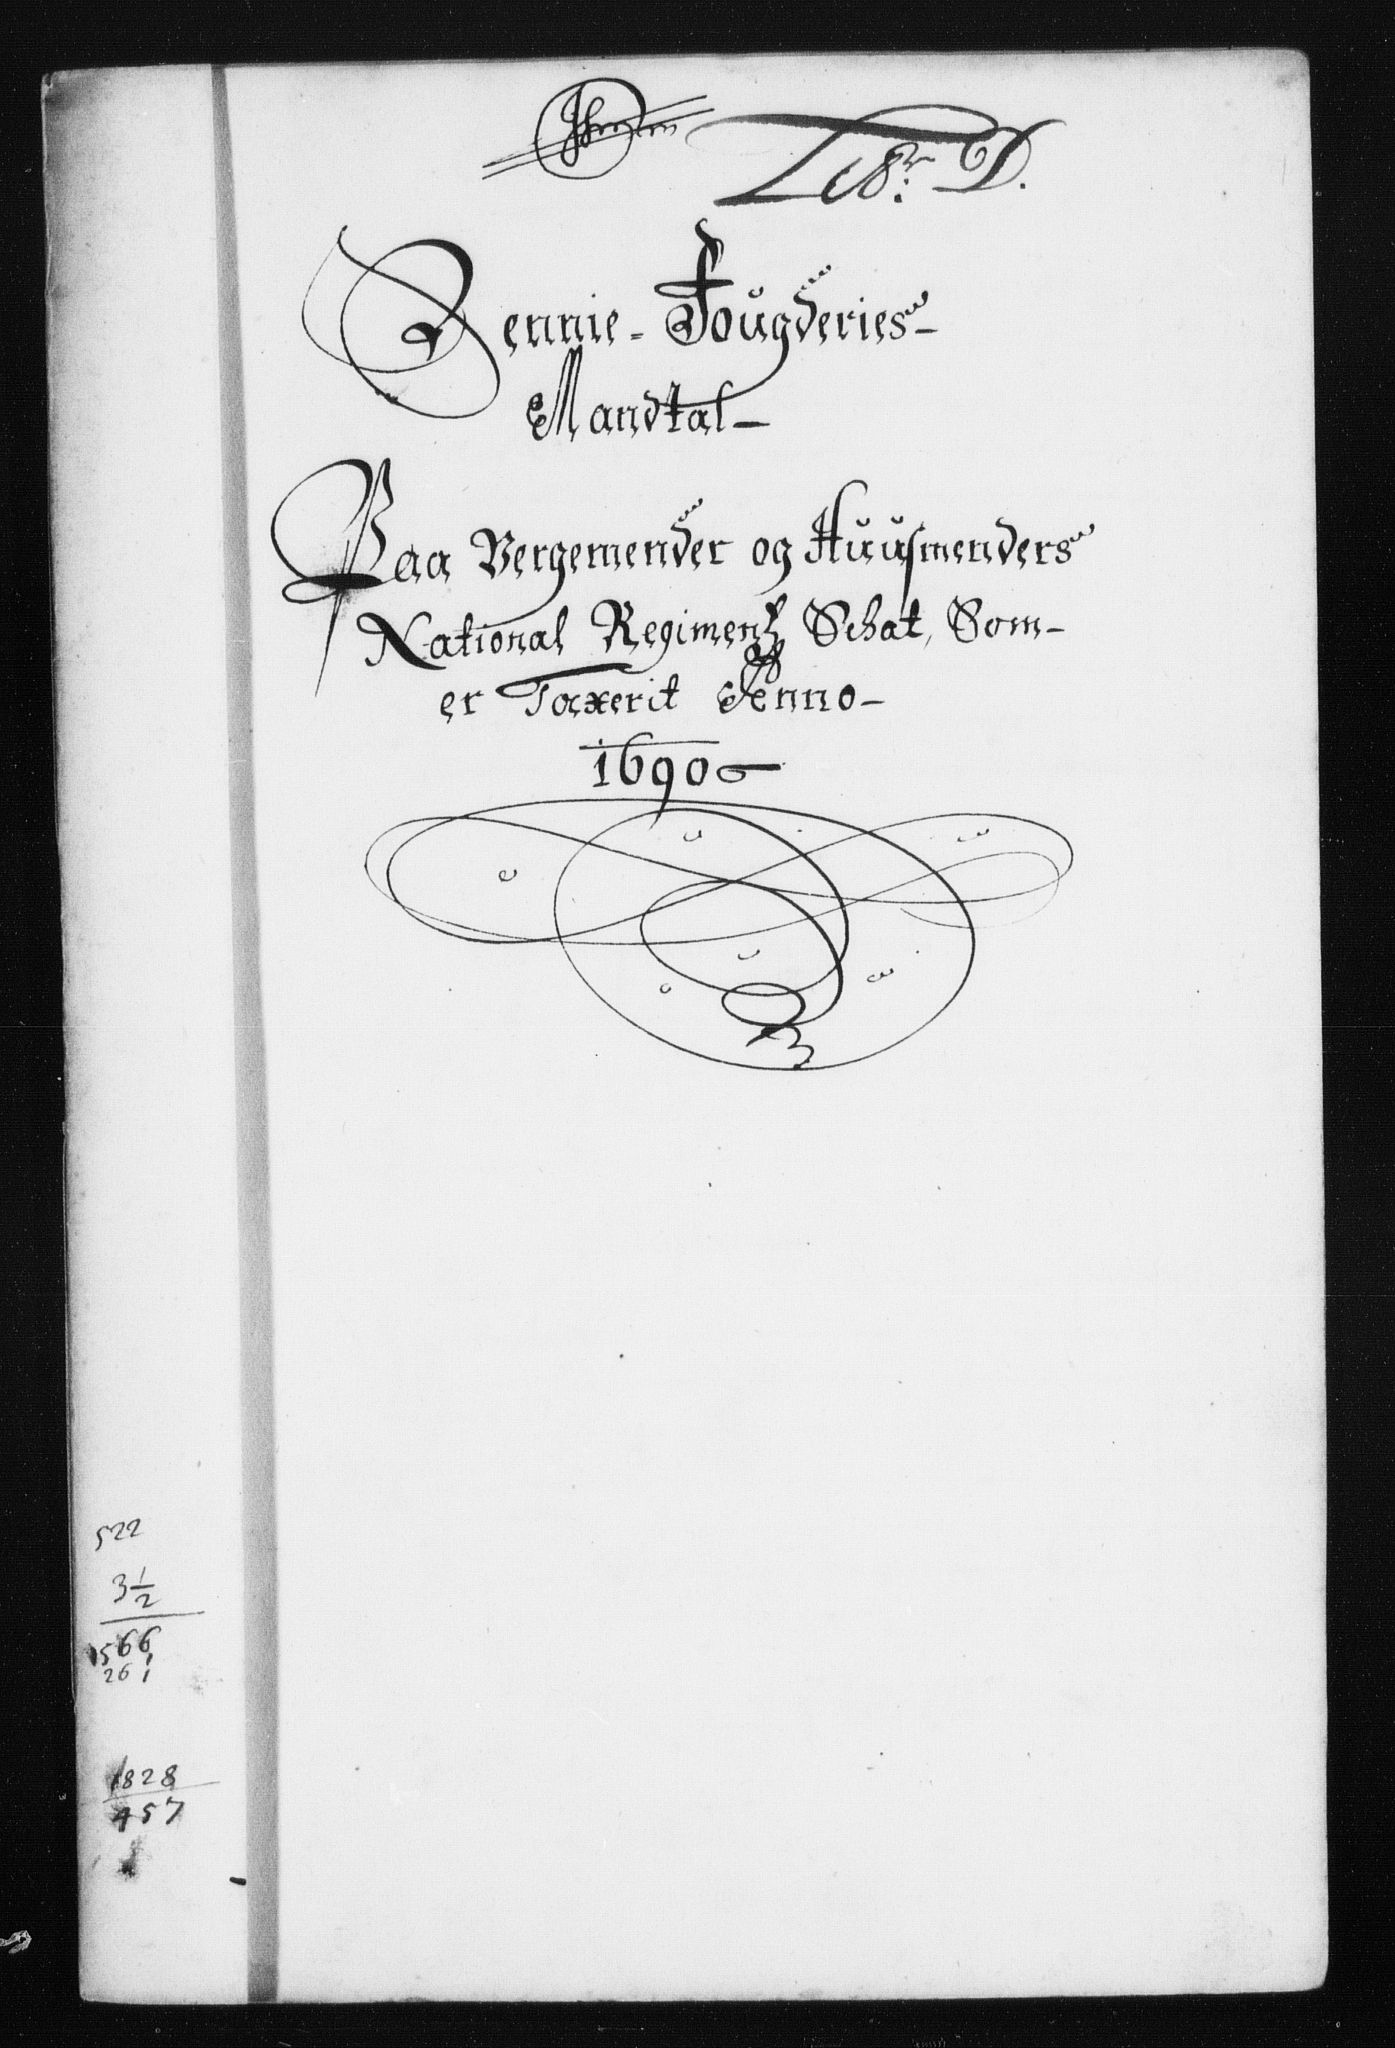 Litr: D.
Bennie-Fougderies-
Mandtal-
Paa Vergemender og Huusmenders
National Regimentz Schat, Som-
er Taxerit Anno-
1690
522
3 1/2
1566
261
1828
457